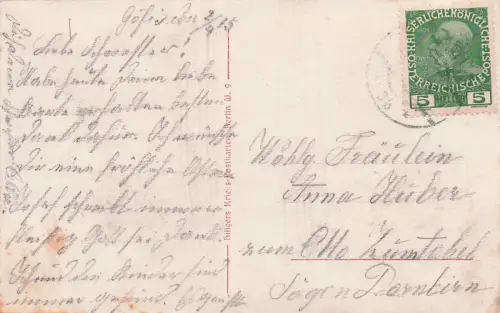 Göfis den 2/4 15
Liebe Schwester!
Habe heute Deine liebe
Karte erhalten besten
Dank dafür. Ich wünsche
Dir eine fröhliche Ostern
Josef schreibt immer
fleißig Gott sei Dank.
sind die Kinder hier
immer gesund.
Hilgers Kriegs-Postkarten Berlin W. 9
KAISERLICHE KÖNIGLICHE
ÖSTERREICHISCHE POST
5 5
Wohlg. Fräulein
Anna Huber
zum Otto Zumtobel
Sägen Dornbirn